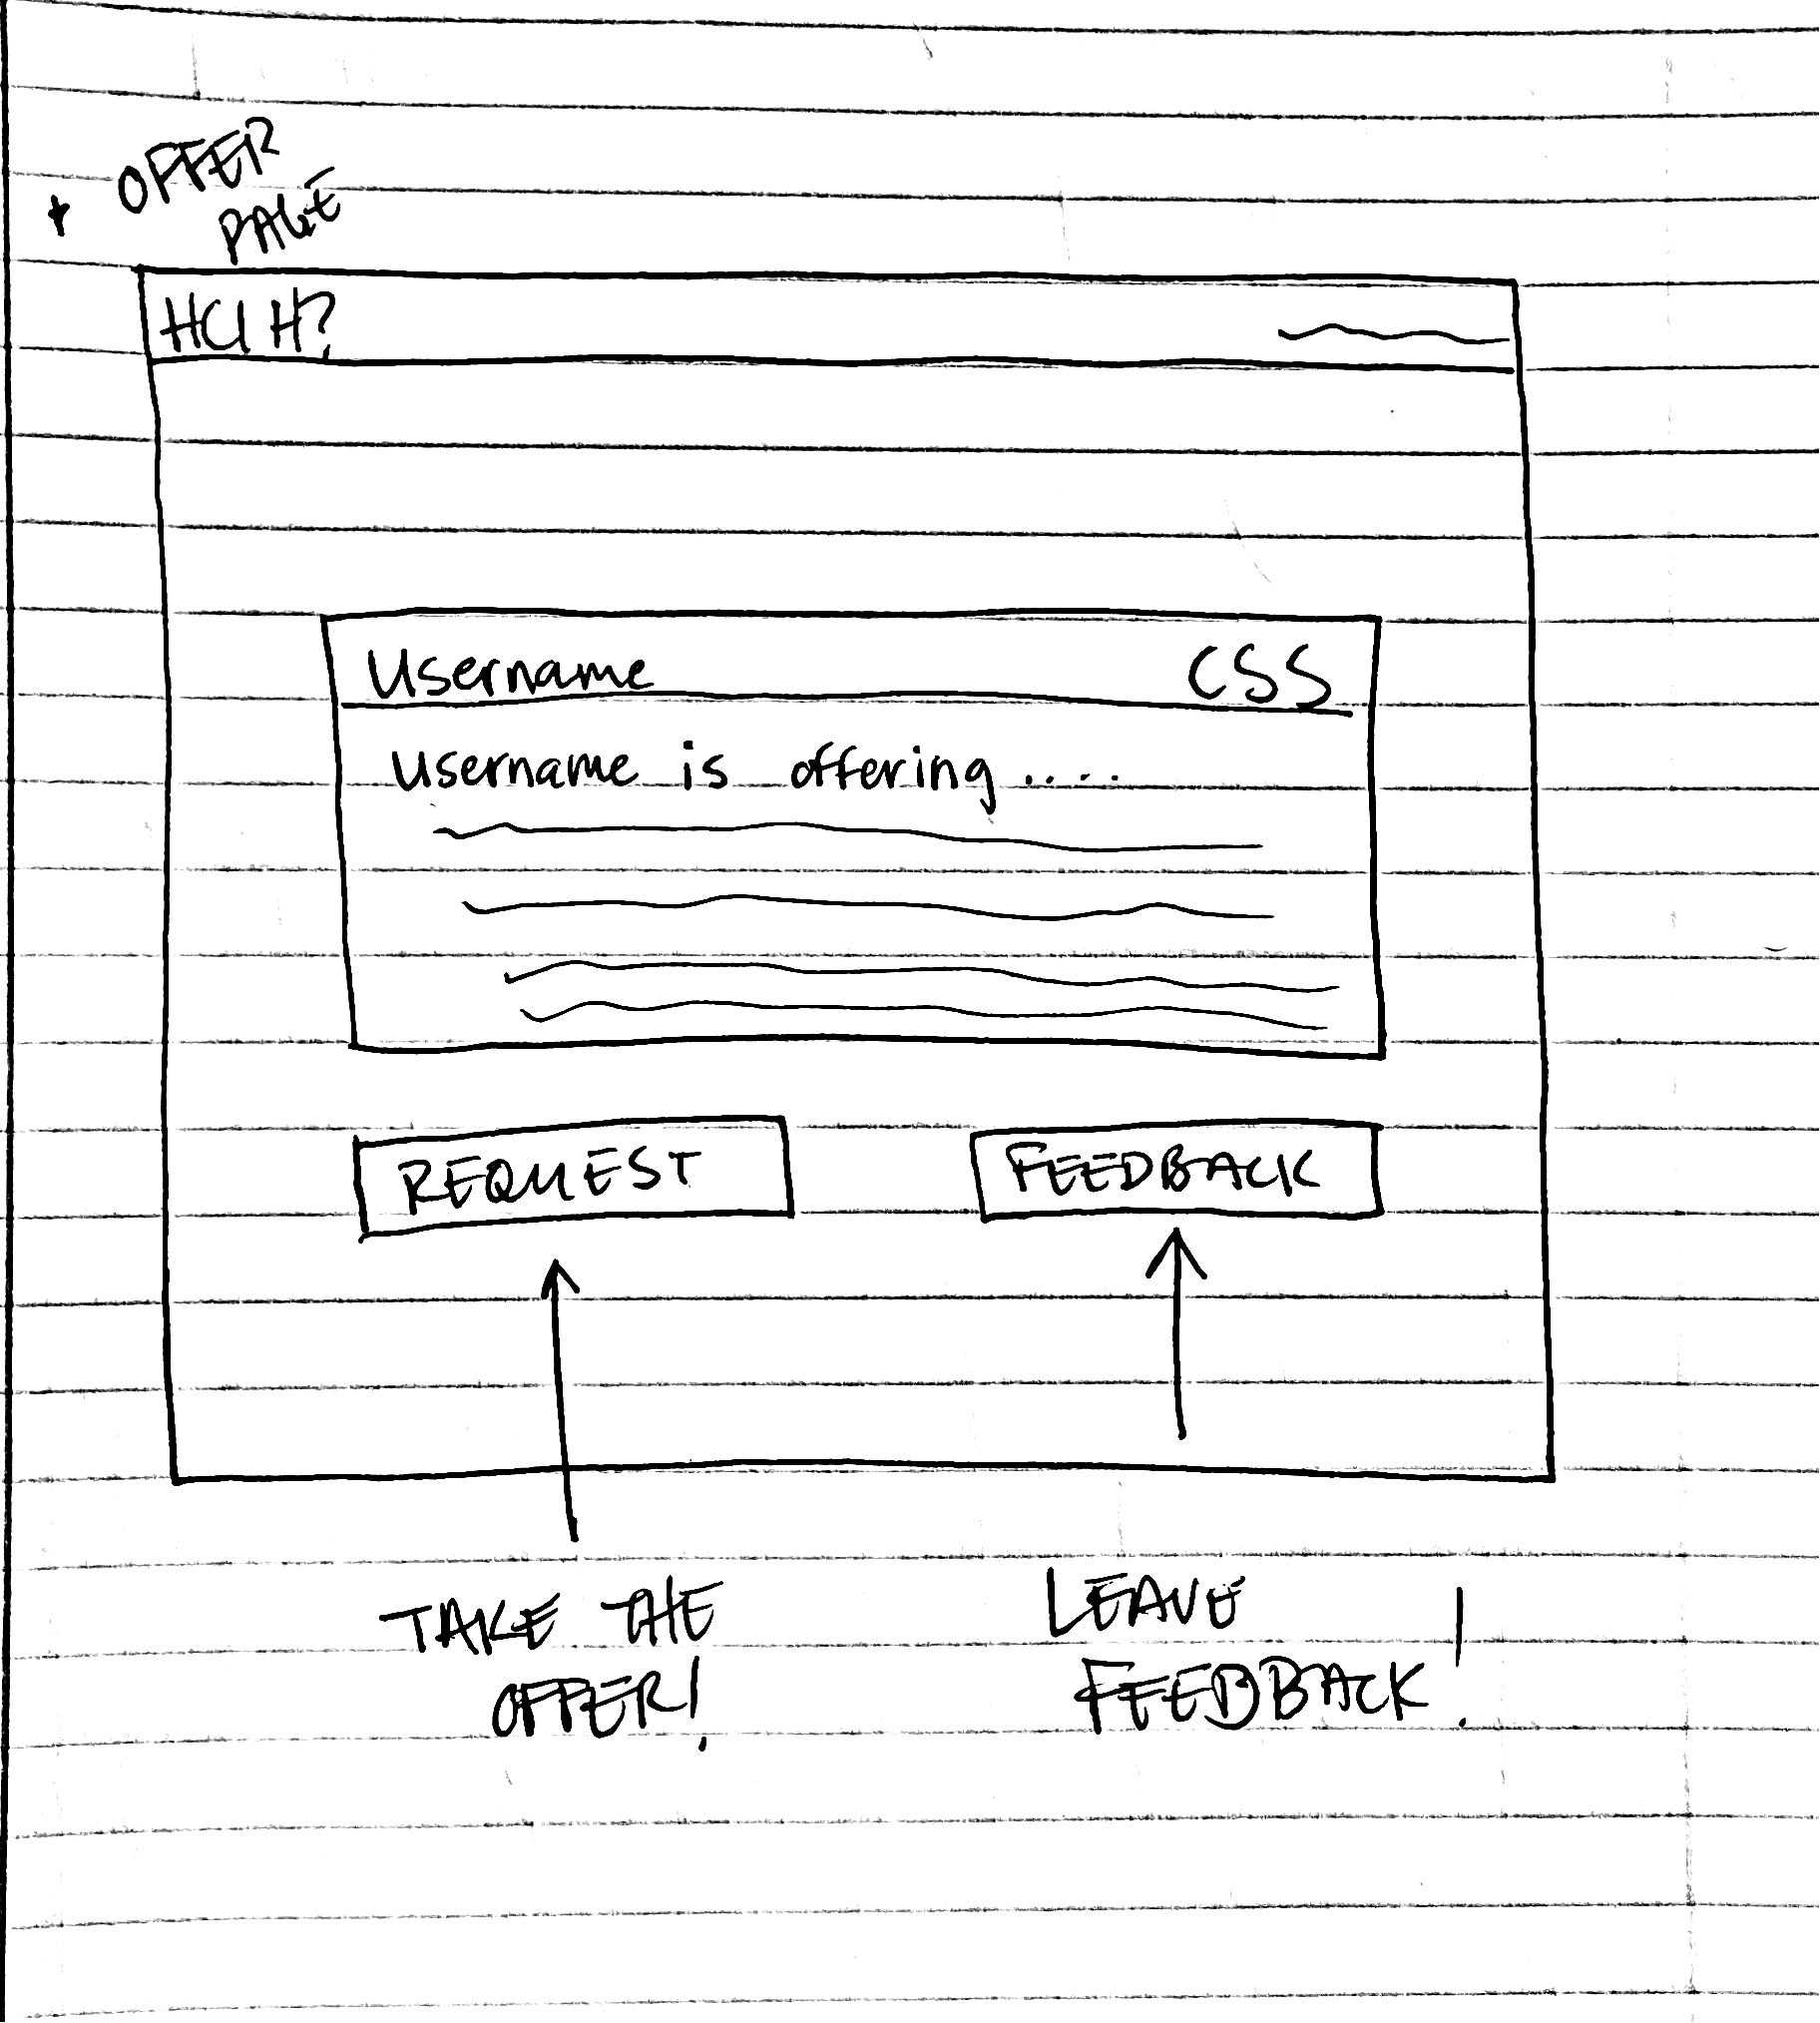 * OFFER
PAGE
HUH?
Username CSS
Username is offering ....
REQUEST FEEDBACK
TAKE THE LEAVE
OFFER! FEEDBACK!